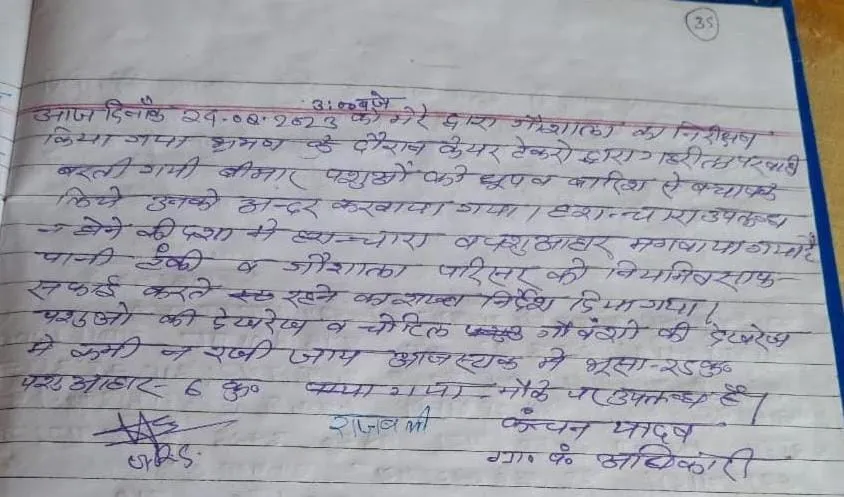 35
3:00 बजे
आज दिनाँक 24.08.2023 को मेरे द्वारा गौशाला का निरीक्षण
किया गया भ्रमण के दौरान केयर टेकरो द्वारा
बरती गयी बीमार पशुओं को धूप व बारिश से बचाव के
लिये उनको अन्दर करवाया गया। हरा चारा उपलब्ध
न होने की दशा मे हरा चारा व पशुआहार मगवाया गया है
पानी टंकी व गौशाला परिसर को नियमित साफ
सफाई करते रहने का सख्त निर्देश दिया गया।
पशुओ की देखरेख व चोटिल गौवंशो की देखरेख
मे कमी न रखी जाय आज स्टाक मे भूसा - 25 कु०
पशु आहार - 6 कु० पाया गया - मौके पर उपलब्ध है।
राजबली कंचन यादव
ग्रा. पं. अधिकारी